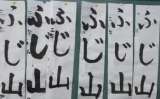 ふじ山
ふじ山
ふじ山
ふじ山
ふじ山
ふじ山